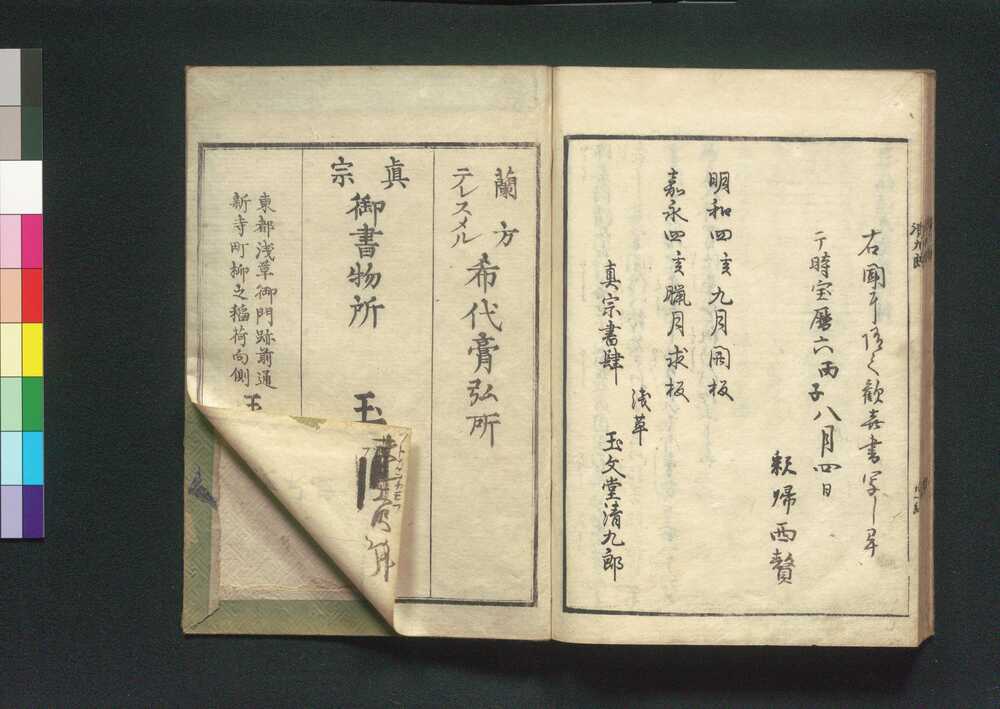 右聞乎随て歓喜書写し畢
于時宝暦六丙子八月四日
釈帰西贅
明和四亥九月開板
嘉永四亥臘月求板
真宗書肆 浅草 玉文堂清九郎
蘭方 テレスメル 希代膏弘所
眞宗 御書物所 玉
東都浅草御門跡前通
新寺町柳之稲荷向側 玉
清九郎